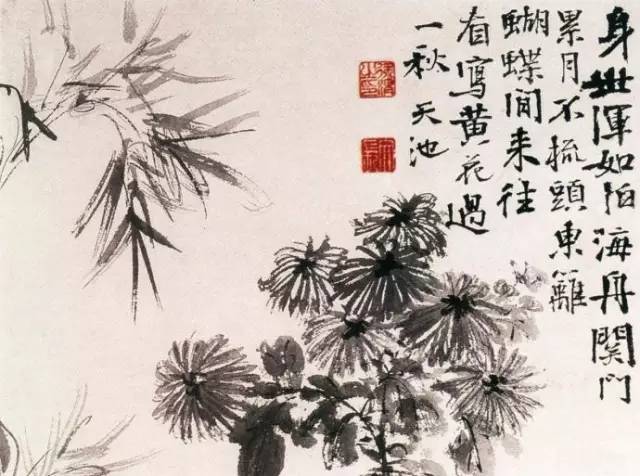 身世渾如泊海舟關門
累月不梳頭東籬
蝴蝶間来往
看寫黄花過
一秋 天池